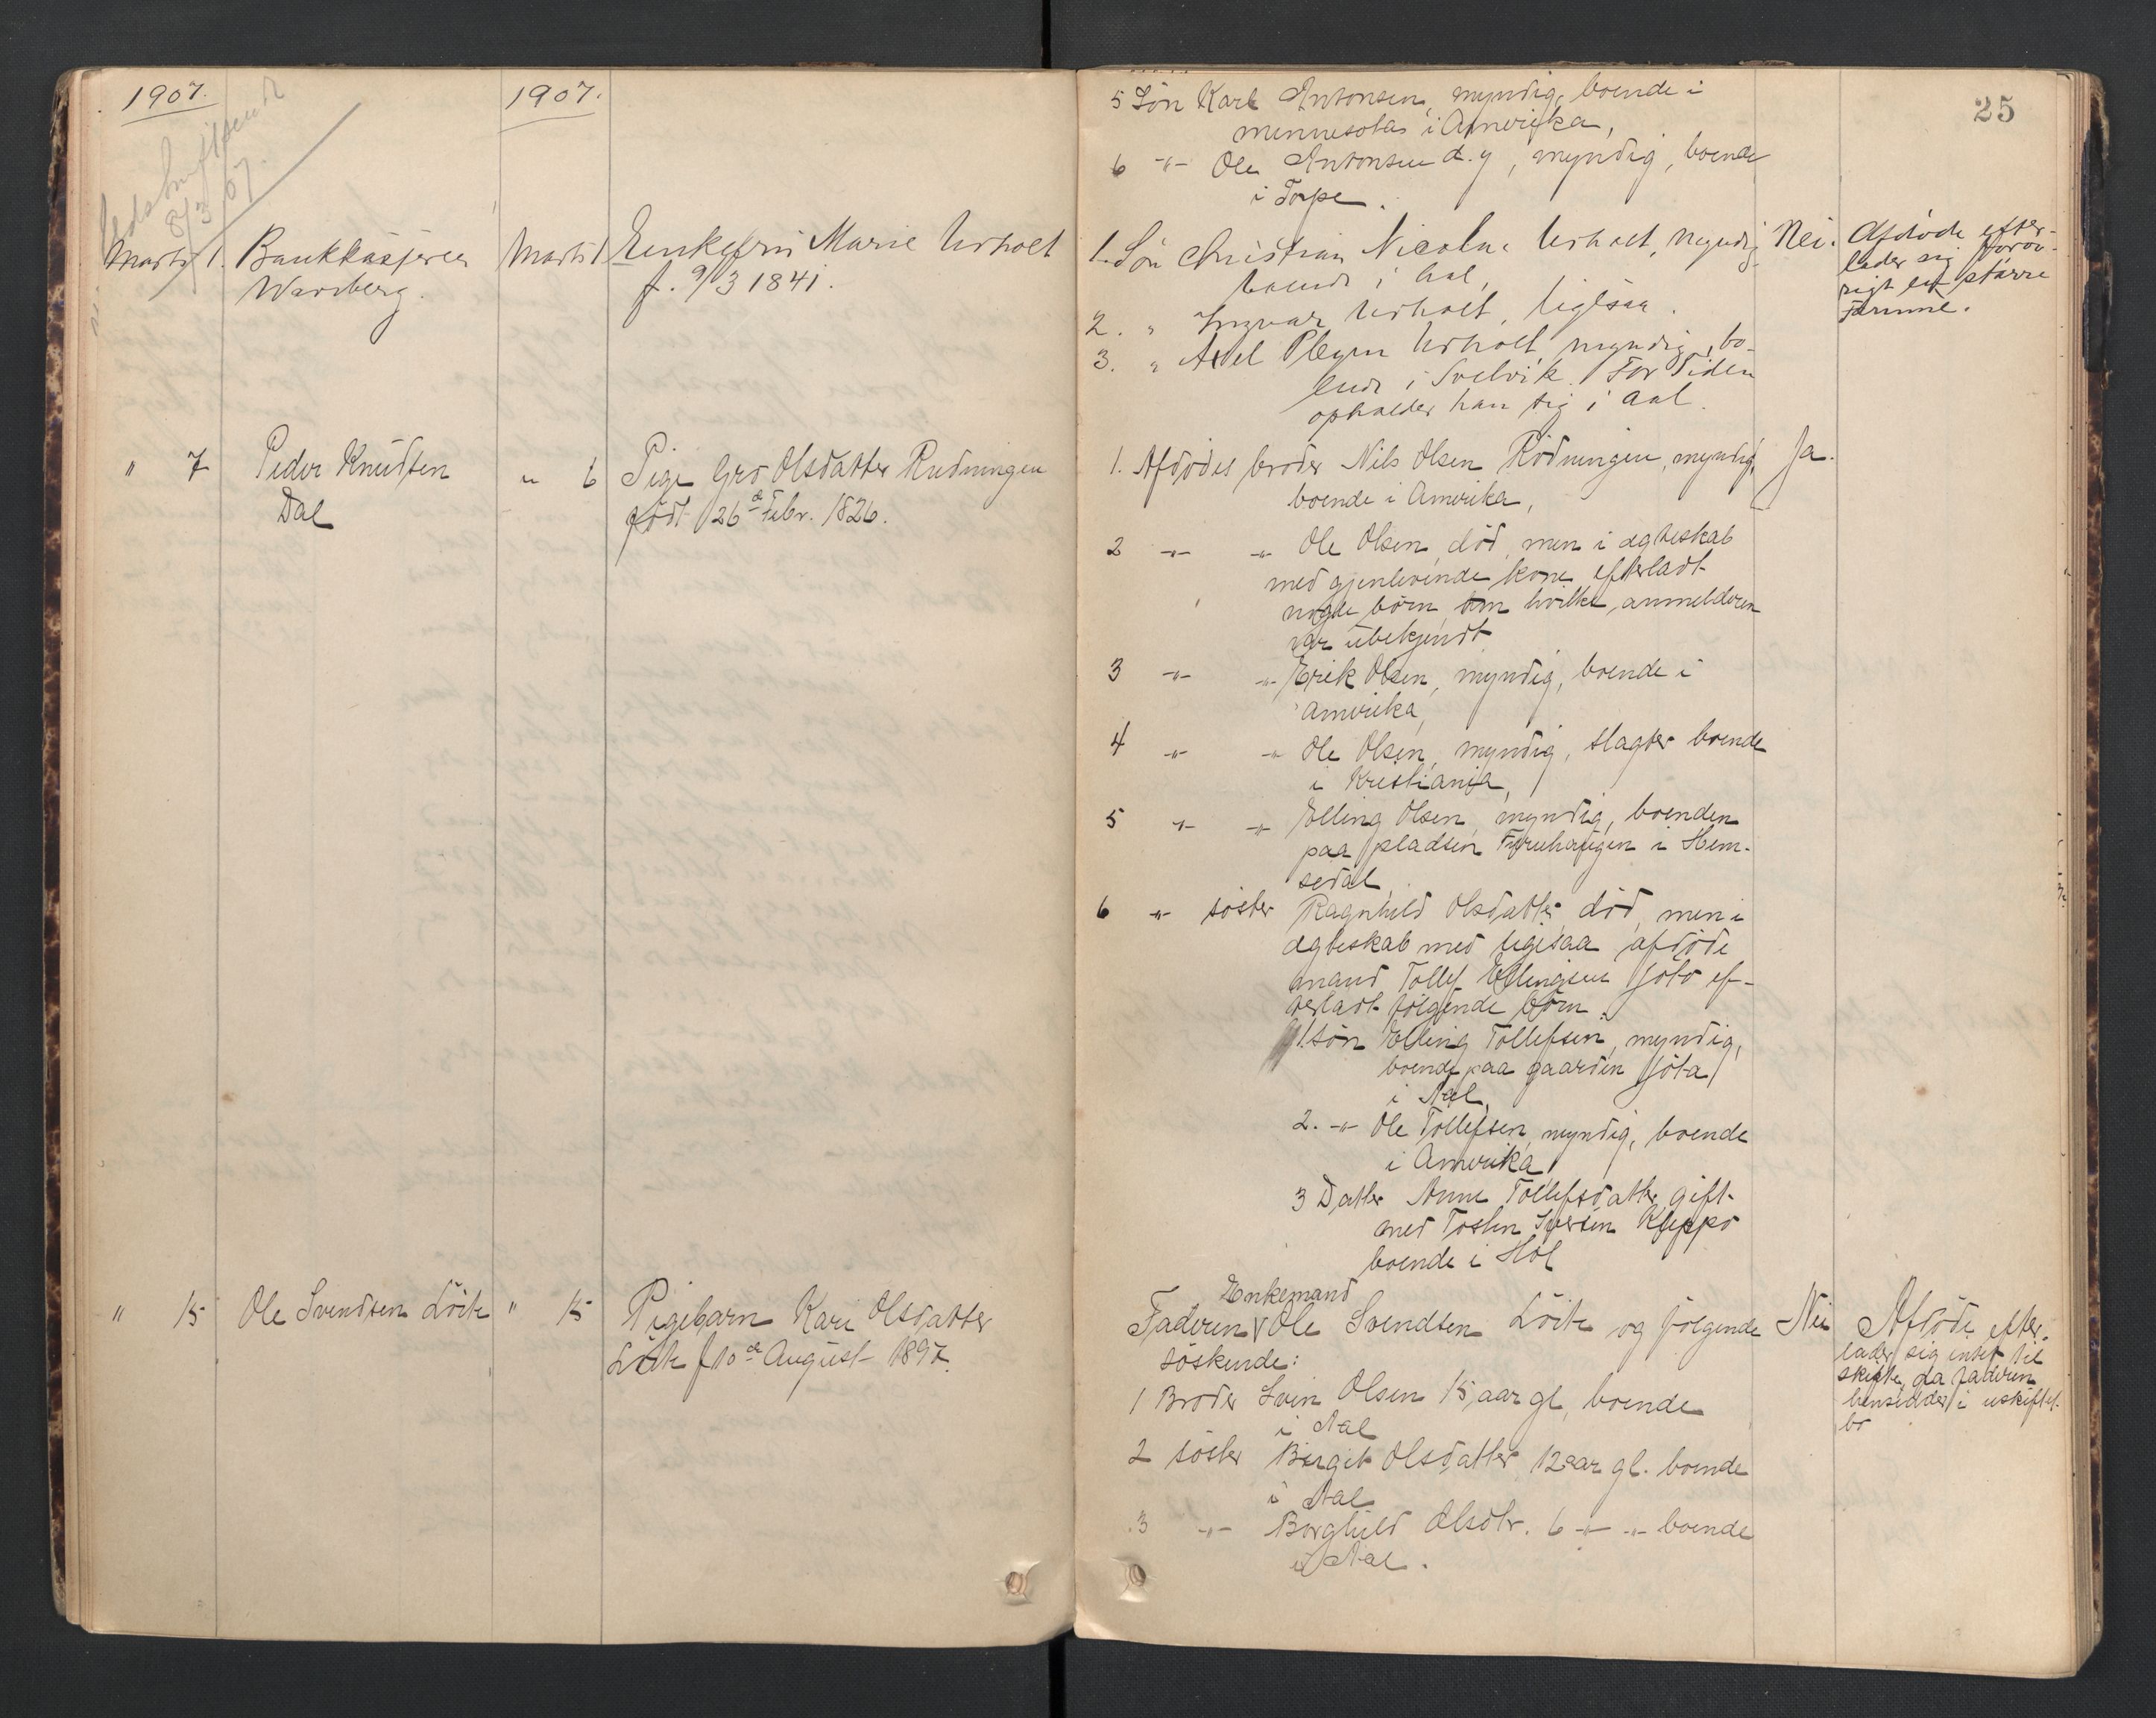 1907.
1907.
Udskrift sendt
8/3 07.
Marts 1. Bankkasserer
Warberg.
Marts 1 Enkefru Marie Urholt
f. 9/3 1841.
" 7 Peder Knudsen
Dal
" 6 Pige Gro Olsdatter Rudningen
født 26de Febr. 1826.
" 15 Ole Svendsen Löite
" 15 Pigebarn Kari Olsdatter
Löite f 10de August 1897.
25
5 Sön Karl Antonsen, myndig, boende i
minnesotas i Amerika,
6 -"- Ole Antonsen d.y, myndig, boende
i Torpe.
1. Sön Christian Nicolai Urholt, myndig
boende i Aal,
2. " Ingvar Urholt, ligesaa.
3. " Axel Pleym Urholt myndig, bo-
ende i Svelvik. For Tiden
opholder han sig i Aal.
Nei. Afdöde efter-
lader sig foröv-
rigt en större
Formue.
1. Afdödes broder Nils Olsen Rödningen, myndig,
boende i Amerika,
Ja.
2 -"- -"- Ole Olsen, död, men i ægteskab
med gjenlevende kone efterladt
nogle börn, om hvilke anmelderen
var ubekjendt
3 -"- -"- Erik Olsen, myndig, boende i
Amerika,
4 -"- -"- Ole Olsen, myndig, slagter boende
i Kristiania,
5 -"- -"- Elling Olsen, myndig, boenden
paa pladsen Furuhaugen i Hem-
sedal,
6 -"- söster Ragnhild Olsdatter, död, men i
ægteskab med ligesaa afdöde
mand Tollef Ellingsen Göto ef-
terladt fölgende börn:
1. sön Elling Tollefsen, myndig,
boende paa gaarden Göta
i Aal,
2. -"- Ole Tollefsen, myndig, boende
i Amerika
3 Datter Anne Tollefsdatter, gift
med Tosten Iversen Kleppo
boende i Hol
Enkemand
Faderen Ole Svendsen Löite og fölgende
söskende:
Nei
Afdöde efter-
lader sig intet til
skifte, da faderen
hensidder i uskiftet
bo
1 Broder Svein Olsen 15 aar gl, boende
i Aal
2 söster Birgit Olsdatter, 12 aar gl. boende
i Aal
3 -"- Borghild Olsdtr. 6 -"- -"- boende
i Aal.